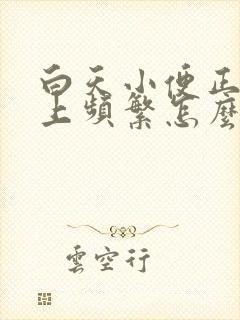 白天小便正
上頻繁怎麼
雲空行